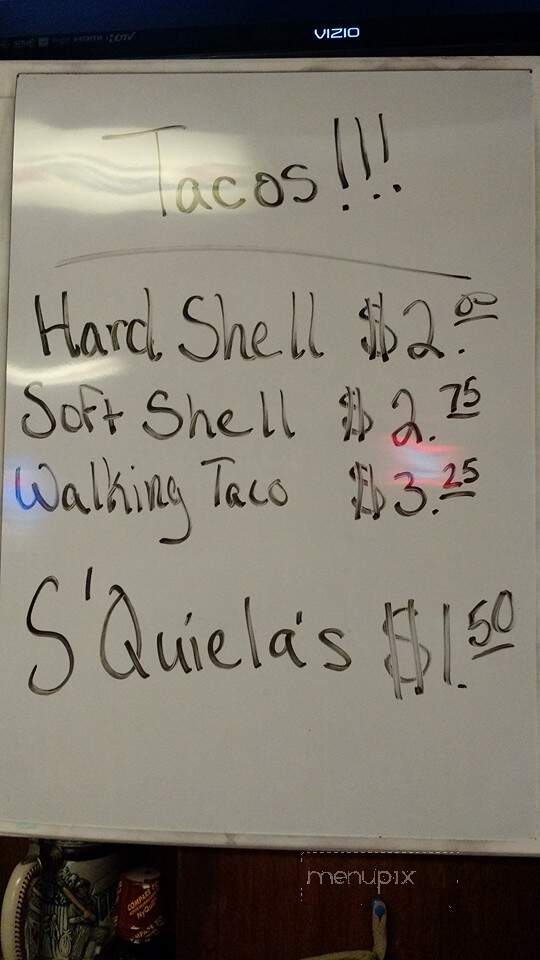 VIZIO
Tacos!!!
Hard Shell $2.00
Soft Shell $2.75
Walking Taco $3.25
S'Quiela's $1.50
menupix